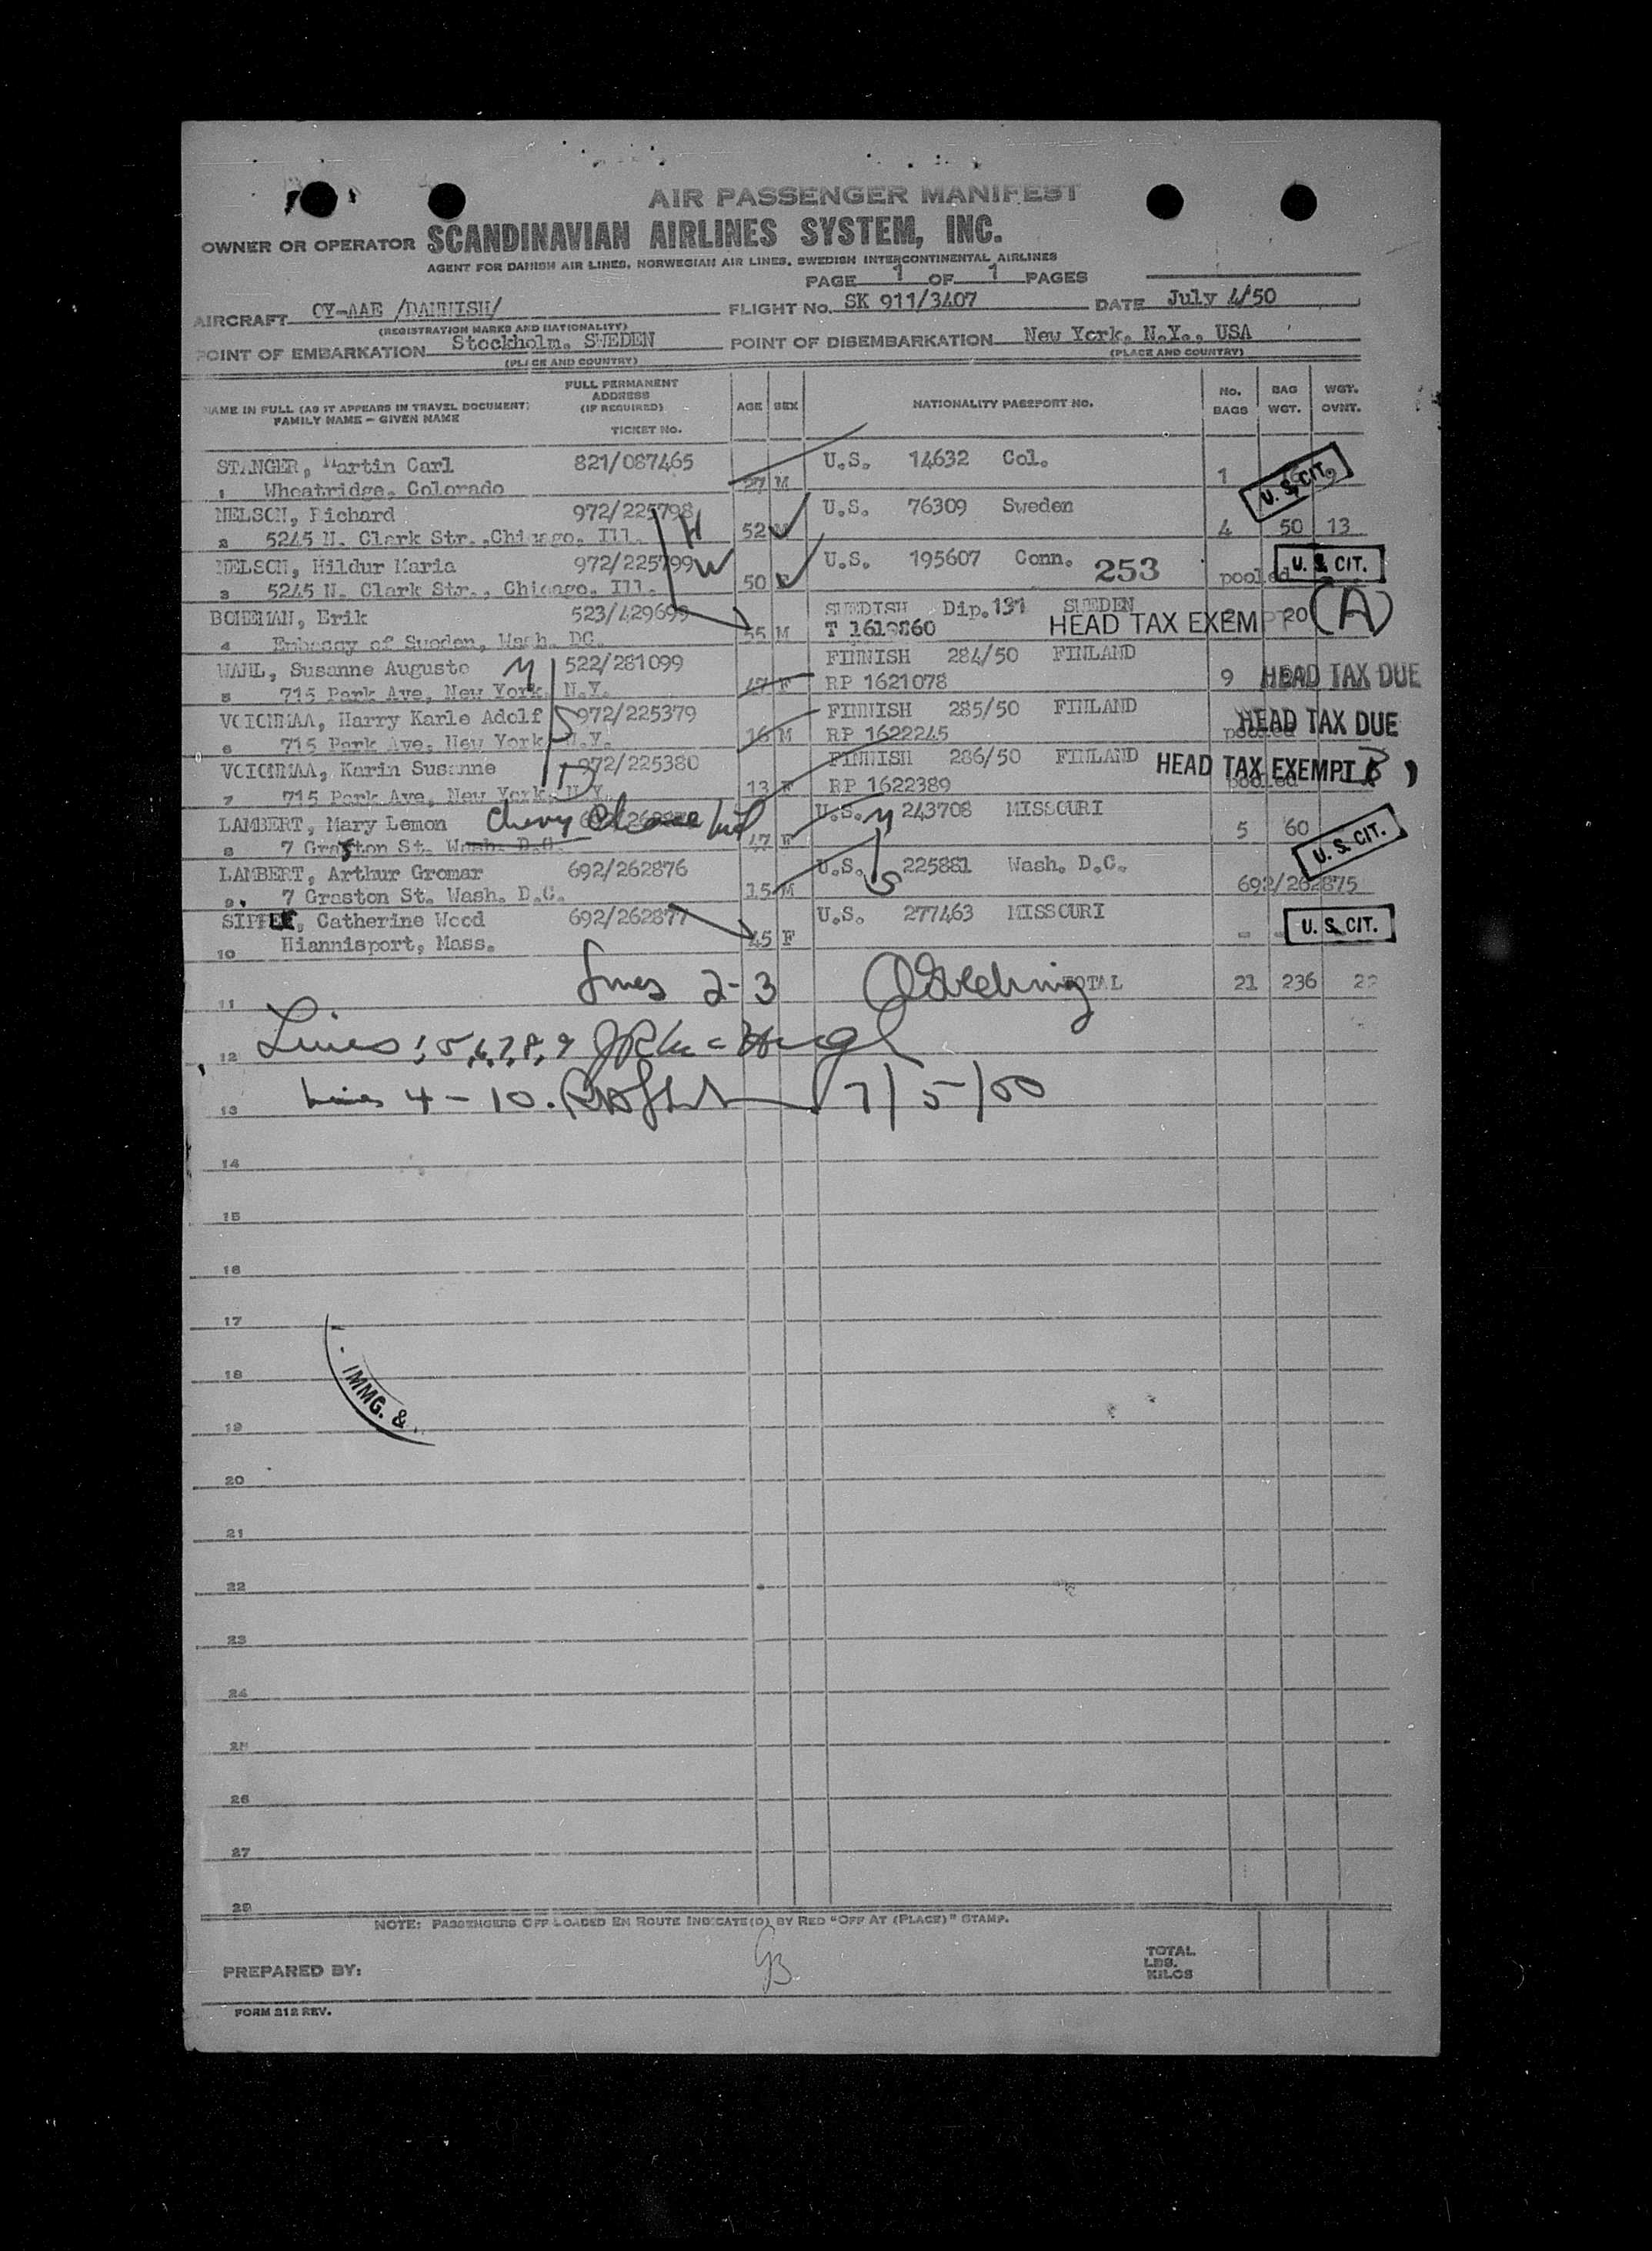 AIR PASSENGER MANIFEST
OWNER OR OPERATOR SCANDINAVIAN AIRLINES SYSTEM, INC.
AGENT FOR DANISH AIR LINES, NORWEGIAN AIR LINES, SWEDISH INTERCONTINENTAL AIRLINES
PAGE 1 OF 1 PAGES
AIRCRAFT OY-AAE /DANNISH/ FLIGHT No. SK 911/3407 DATE July 4/50
(REGISTRATION MARKS AND NATIONALITY)
POINT OF EMBARKATION Stockholm. SWEDEN POINT OF DISEMBARKATION New York. N.Y., USA
(PLACE AND COUNTRY) (PLACE AND COUNTRY)
NAME IN FULL (AS IT APPEARS IN TRAVEL DOCUMENT) FAMILY NAME — GIVEN NAME
FULL PERMANENT ADDRESS (IF REQUIRED) TICKET No.
AGE SEX NATIONALITY PASSPORT NO. No. BAGS BAG WGT. WGT. OVNT.
STANGER, Martin Carl 821/087465 U.S. 14632 Col.
1 Wheatridge. Colorado 27 M 1 U. S. CIT.
NELSON, Richard 972/225798 H U.S. 76309 Sweden
2 5245 N. Clark Str.,Chicago. Ill. 52 M 4 50 13
NELSON, Hildur Maria 972/225799 W U.S. 195607 Conn. 253 U. S. CIT.
3 5245 N. Clark Str., Chicago. Ill. 50 F pooled
BOHEMAN, Erik 523/429699 SWEDISH Dip.131 SWEDEN
4 Embassy of Sweden, Wash. DC. 55 M T 1619860 HEAD TAX EXEMPT 20 (A)
WAHL, Susanne Auguste M 522/281099 FINNISH 284/50 FINLAND
5 715 Park Ave, New York. N.Y. 47 F RP 1621078 9 HEAD TAX DUE
VOIONMAA, Harry Karle Adolf S 972/225379 FINNISH 285/50 FINLAND
6 715 Park Ave, New York. N.Y. 16 M RP 1622245 pooled HEAD TAX DUE
VOIONMAA, Karin Susanne D 972/225380 FINNISH 286/50 FINLAND
7 715 Park Ave, New York. N.Y. 13 F RP 1622389 pooled HEAD TAX EXEMPT B)
LAMBERT, Mary Lemon Chevy Chase Md U.S. M 243708 MISSOURI
8 7 Grafton St. Wash. D.C. 47 F 5 60 U. S. CIT.
LAMBERT, Arthur Gromar 692/262876 U.S. S 225881 Wash. D.C.
9. 7 Graston St. Wash. D.C. 15 M 692/262875
Catherine Wood 692/262877 U.S. 277463 MISSOURI U. S. CIT.
10 Hiannisport, Mass. 45 F - -
Lines 2-3 TOTAL 21 236 22
11
12 Lines 1,5,6,7,8,9
13 Lines 4-10. 7/5/50
14
15
16
17
IMMG. &
18
19
20
21
22
23
24
25
26
27
28
NOTE: PASSENGERS OFF LOADED EN ROUTE INDICATE(D) BY RED "OFF AT (PLACE)" STAMP.
PREPARED BY: GB TOTAL LBS. KILOS
FORM 212 REV.